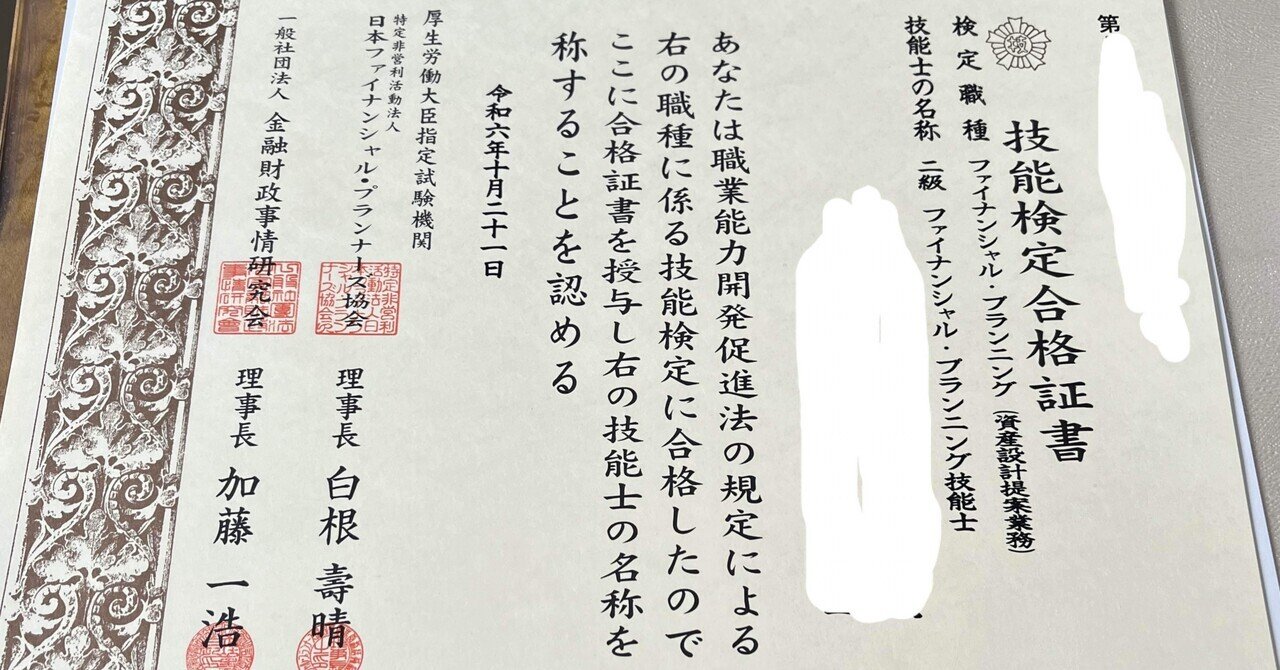 第
技能検定合格証書
検定職種 ファイナンシャル・プランニング(資産設計提案業務)
技能士の名称 二級 ファイナンシャル・プランニング技能士
あなたは職業能力開発促進法の規定による
右の職種に係る技能検定に合格したので
ここに合格証書を授与し右の技能士の名称を
称することを認める
令和六年十月二十一日
厚生労働大臣指定試験機関
特定非営利活動法人
日本ファイナンシャル・プランナーズ協会 理事長 白根 壽晴
一般社団法人 金融財政事情研究会 理事長 加藤 一浩